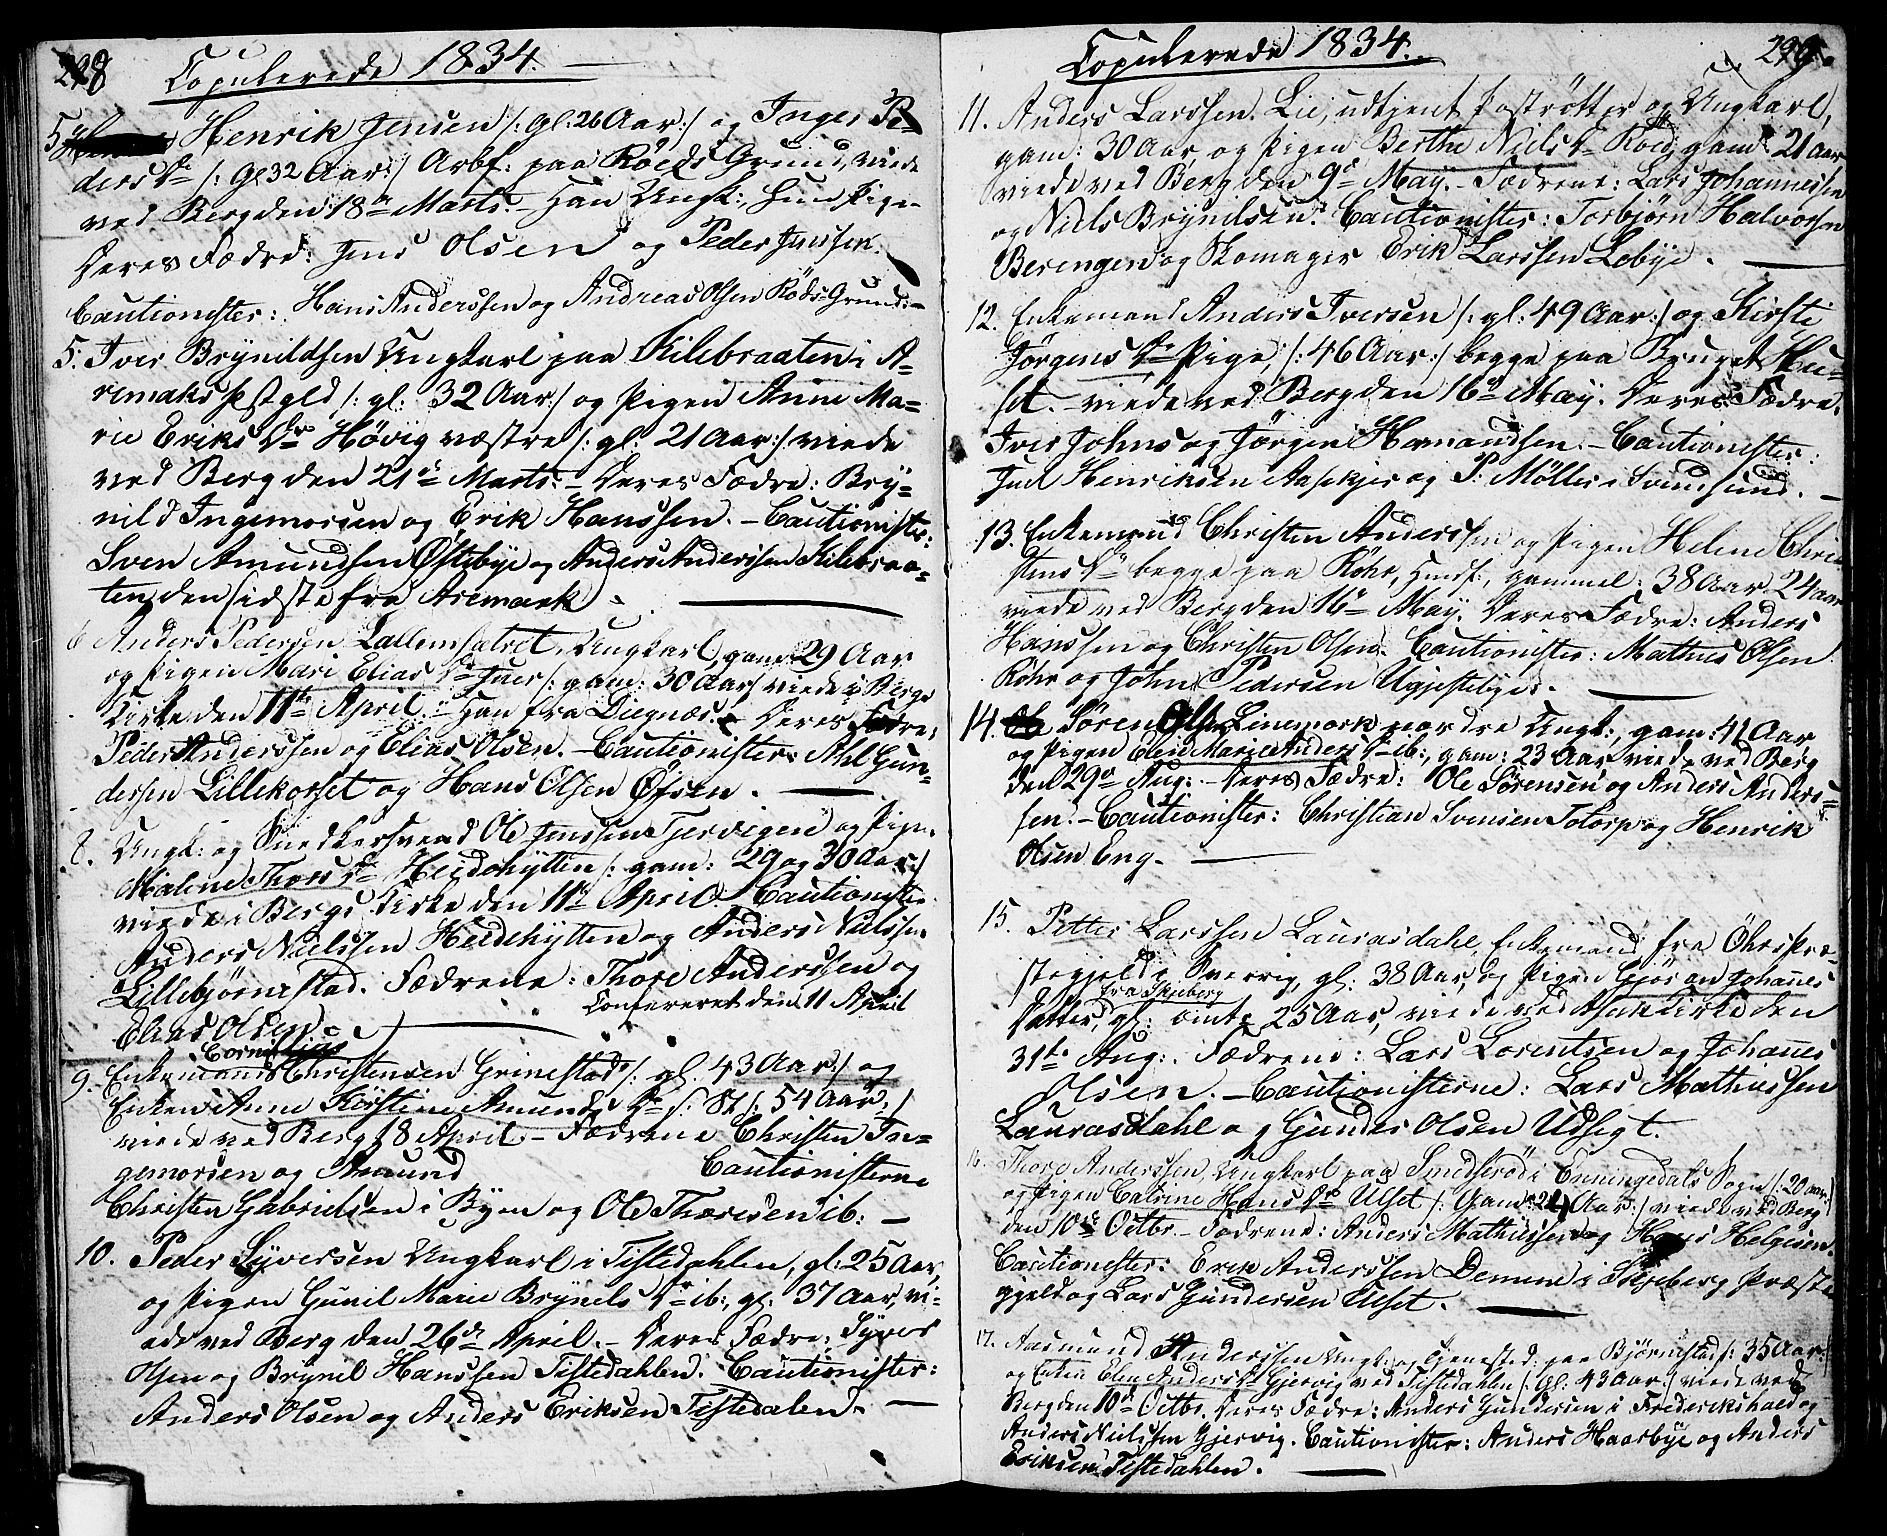 298
Copulerede 1834.
5. Henrik Jensen /: gl: 26 Aar :/ og Inger Pe-
ders Dr /: Gl 32 Aar :/ Arbf: paa Röeds Grund, viede
ved Berg den 18de Marts. - Han Ungk:, hun Pige
Deres Fædre: Jens Olsen og Peder Jenssen.
Cautionister: Hans Anderssen og Andreas Olsen Röds-Grund. -
5. Iver Brynildsen Ungkarl paa Kilebraaten i A-
remaks Pstgld /: gl: 32 Aar :/ og Pigen Anne Ma-
rie Eriks Dr Hövig væstre /: gl: 21 Aar :/ viede
ved Berg den 21de Marts. - Deres Fædre: Bry-
nild Ingemorsen og Erik Hanssen. - Cautionister:
Sven Amundsen Östebye og Anders Anderssen Kilebraa-
ten, den sidste fra Aremark.
6 Anders Pedersen Lallemsætret, Ungkarl, gam: 29 Aar
og Pigen Mari Elias Dr /: gam: 30 Aar / viede i Bergs
Kirke den 11te April. - Han fra Diegnæs. - Deres Fædre;
Peder Anderssen og Elias Olsen. - Cautionister: Ahl Gun-
dersen Lillekorset og Hans Olsen Öfsen.
8. Ungk: og Snedkersvend Ole Jenssen Tjervigen og Pigen
Malene Thors Dr Heidehytten /: gam: 29 og 30 Aar :/
viede i Bergs Kirke den 11te April. Cautionister
Anders Nielssen Heidehytten og Anders Nielssen
Lillebjörnestad. Fædrene: Thore Anderssen og
Elias Olsen.
Confereret den 11 April
Cornelius
9. Enkemand Christensen Grinestad /: gl. 43 Aar :/ og
Enken Anne Kirstine Amunds Dr /: 54 Aar :/
viede ved Berg 18 April - Fædrene Christen In-
gemorsen og Amund Cautionisterne
Christen Gabrielsen i Byen og Ole Thoresen ib: -
10. Peder Syversen Ungkarl i Tistedahlen, gl: 25 Aar,
og Pigen Gunil Marie Brynels Dr ib:, gl: 37 Aar, vi-
ede ved Berg den 26de April. - Deres Fædre: Syver
Olsen og Brynel Hanssen Tistedahlen. Cautionister:
Anders Olsen og Anders Eriksen Tistedalen. -
299.
Copulerede 1834.
11. Anders Larssen Lie, udtjent Paströtter og Ungkarl,
gam: 30 Aar, og Pigen Berthe Niels Dr Röed, gaml: 21 Aar
viede ved Berg den 9de May. - Fædrene: Lars Johannessen
og Niels Brynilsen. Cautionister: Torbjörn Halvorsen
Berengen og Skomager Erik Larssen Lobye.
12. Enkemand Anders Iversen /: gl: 49 Aar :/ og Kirsti
Jörgens Dr Pige, /: 46 Aar :/ begge paa Bruget Hu-
set. - viede ved Berg den 16de May. Deres Fædre.
Iver Johns og Jörgen Hamandsen. - Cautionister:
Jens Henriksen Aaskjer og P: Möller Svinesund. -
13. Enkemand Christen Anderssen og Pigen Helene Chri-
stens Dr begge paa Röhr, Huusf:, gammel: 38 Aar 24 aar
viede ved Berg den 16de May. Deres Fædre: Anders
Hanssen og Christen Olsen. Cautionister: Mathis Olsen
Röhr og John Pedersen Ugjestebye.
14. Sören Ols: Linemork nordre Ungk:, gam: 41 Aar
og Pigen Eline Marie Anders Dr ib:, gam: 23 Aar viede ved Berg
den 29de Aug: - Deres Fædre: Ole Sörensen og Anders Anders-
sen. - Cautionister: Christian Svensen Totorp og Henrik
Olsen Eng.
15. Petter Larssen Laurasdahl, Enkemand fra Öhrs Præ-
stegjeld i Sverrig, gl: 38 Aar, og Pigen Gjör an Johanes
Datter, fra Skjeberg gl: omtr 25 Aar, viede ved Asakirke den
31te Aug:. Fædrene: Lars Lorentsen og Johanes
Olsen. - Cautionisterne: Lars Mathiessen
Laurasdahl og Gunder Olsen Udsigt.
16. Thore Anderssen, Ungkarl paa Smedseröd i Enningedals Sogn /: 20 aar :/
og Pigen Catrine Hans Dr Ulset /: Gam: 24 Aar :/ viede ved Berg
den 10de Octbr. - Fædrene: Anders Mathiessen og Hans Helgesen.
Cautionister: Erik Anderssen Demme i Skjeberg Præste-
gjeld og Lars Gundersen Ulset.
17. Aasmund Anderssen Ungk: og Tjenested: paa Björnstad /: 35 Aar :/
og Enken Elen Anders Dr Gjervig ved Tistedahlen /: Gl: 43 Aar :/ viede ved
Berg den 10de Octbr. Deres Fædre: Anders Gundersen i Frederikshald og
Anders Nielssen Gjervig. Cautionister: Anders Haarbye og Anders
Eriksen Tistedahlen.